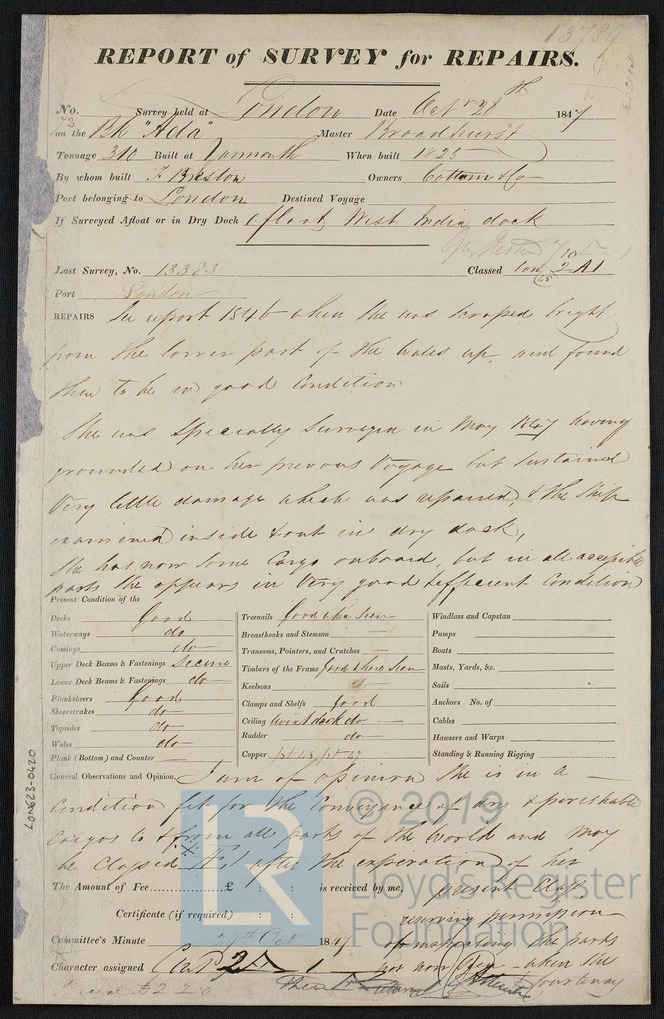 REPORT of SURVEY for REPAIRS.
No. 73 Survey held at London Date Octr 28th 1847
on the Bk "Ada" Master Broadhurst
Tonnage 310 Built at Yarmouth When built 1825
By whom built F Preston Owners Cottam & Co
Port belonging to London Destined Voyage
If Surveyed Afloat or in Dry Dock afloat West India dock
Last Survey, No. 13383 Classed Lon 2 A1
Port London
REPAIRS See report 1846 when she was scraped bright
from the lower part of the wales up, and found
them to be in good condition
She was specially surveyed in May 1847 having
grounded on her previous voyage but sustained
very little damage which was repaired, & the ship
examined inside & out in dry dock,
She has now some Cargo onboard, but in all accessible
parts she appears in very good & efficient Condition
Present Condition of the
Decks Good
Waterways do
Comings do
Upper Deck Beams & Fastenings Secure
Lower Deck Beams & Fastenings do
Planksheers Good
Sheerstrakes do
Topsides do
Wales do
Plank (Bottom) and Counter
Treenails Good where seen
Breasthooks and Stemson
Transoms, Pointers, and Crutches
Timbers of the Frame Good where seen
Keelsons
Clamps and Shelfs Good
Ceiling twixt decks do
Rudder do
Copper pt 43 pt 47
Windlass and Capstan
Pumps
Boats
Masts, Yards, &c.
Sails
Anchors No. of
Cables
Hawsers and Warps
Standing & Running Rigging
General Observations and Opinion I am of opinion she is in a
Condition fit for the Conveyance of dry & perishable
Cargos to & from all parts of the world and may
be Classed after the expiration of her
The Amount of Fee £ : : is received by me, present Class
Certificate (if required) : : reserving permission
Committee's Minute 29th Oct 1847 of making the parts
Character assigned not now when she
LON623-0420
© 2019
Lloyd's Register
Foundation
LR